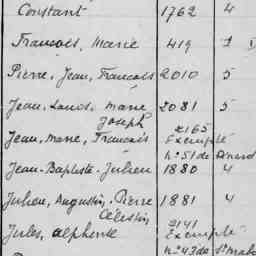 Constant 1762 4
Francois, Marie 419 1
Pierre, Jean, Francois 2010 5
Jean-Louis, Marie 2081 5
Joseph 2165
Jean, Marie, Francois Exempté
n° 51 de Dinard
Jean-Baptiste-Julien 1880 4
Julien, Augustin, Pierre 1881 4
Célestin 2141
Jules, Alphonse Exempté
n° 43 de St Malo